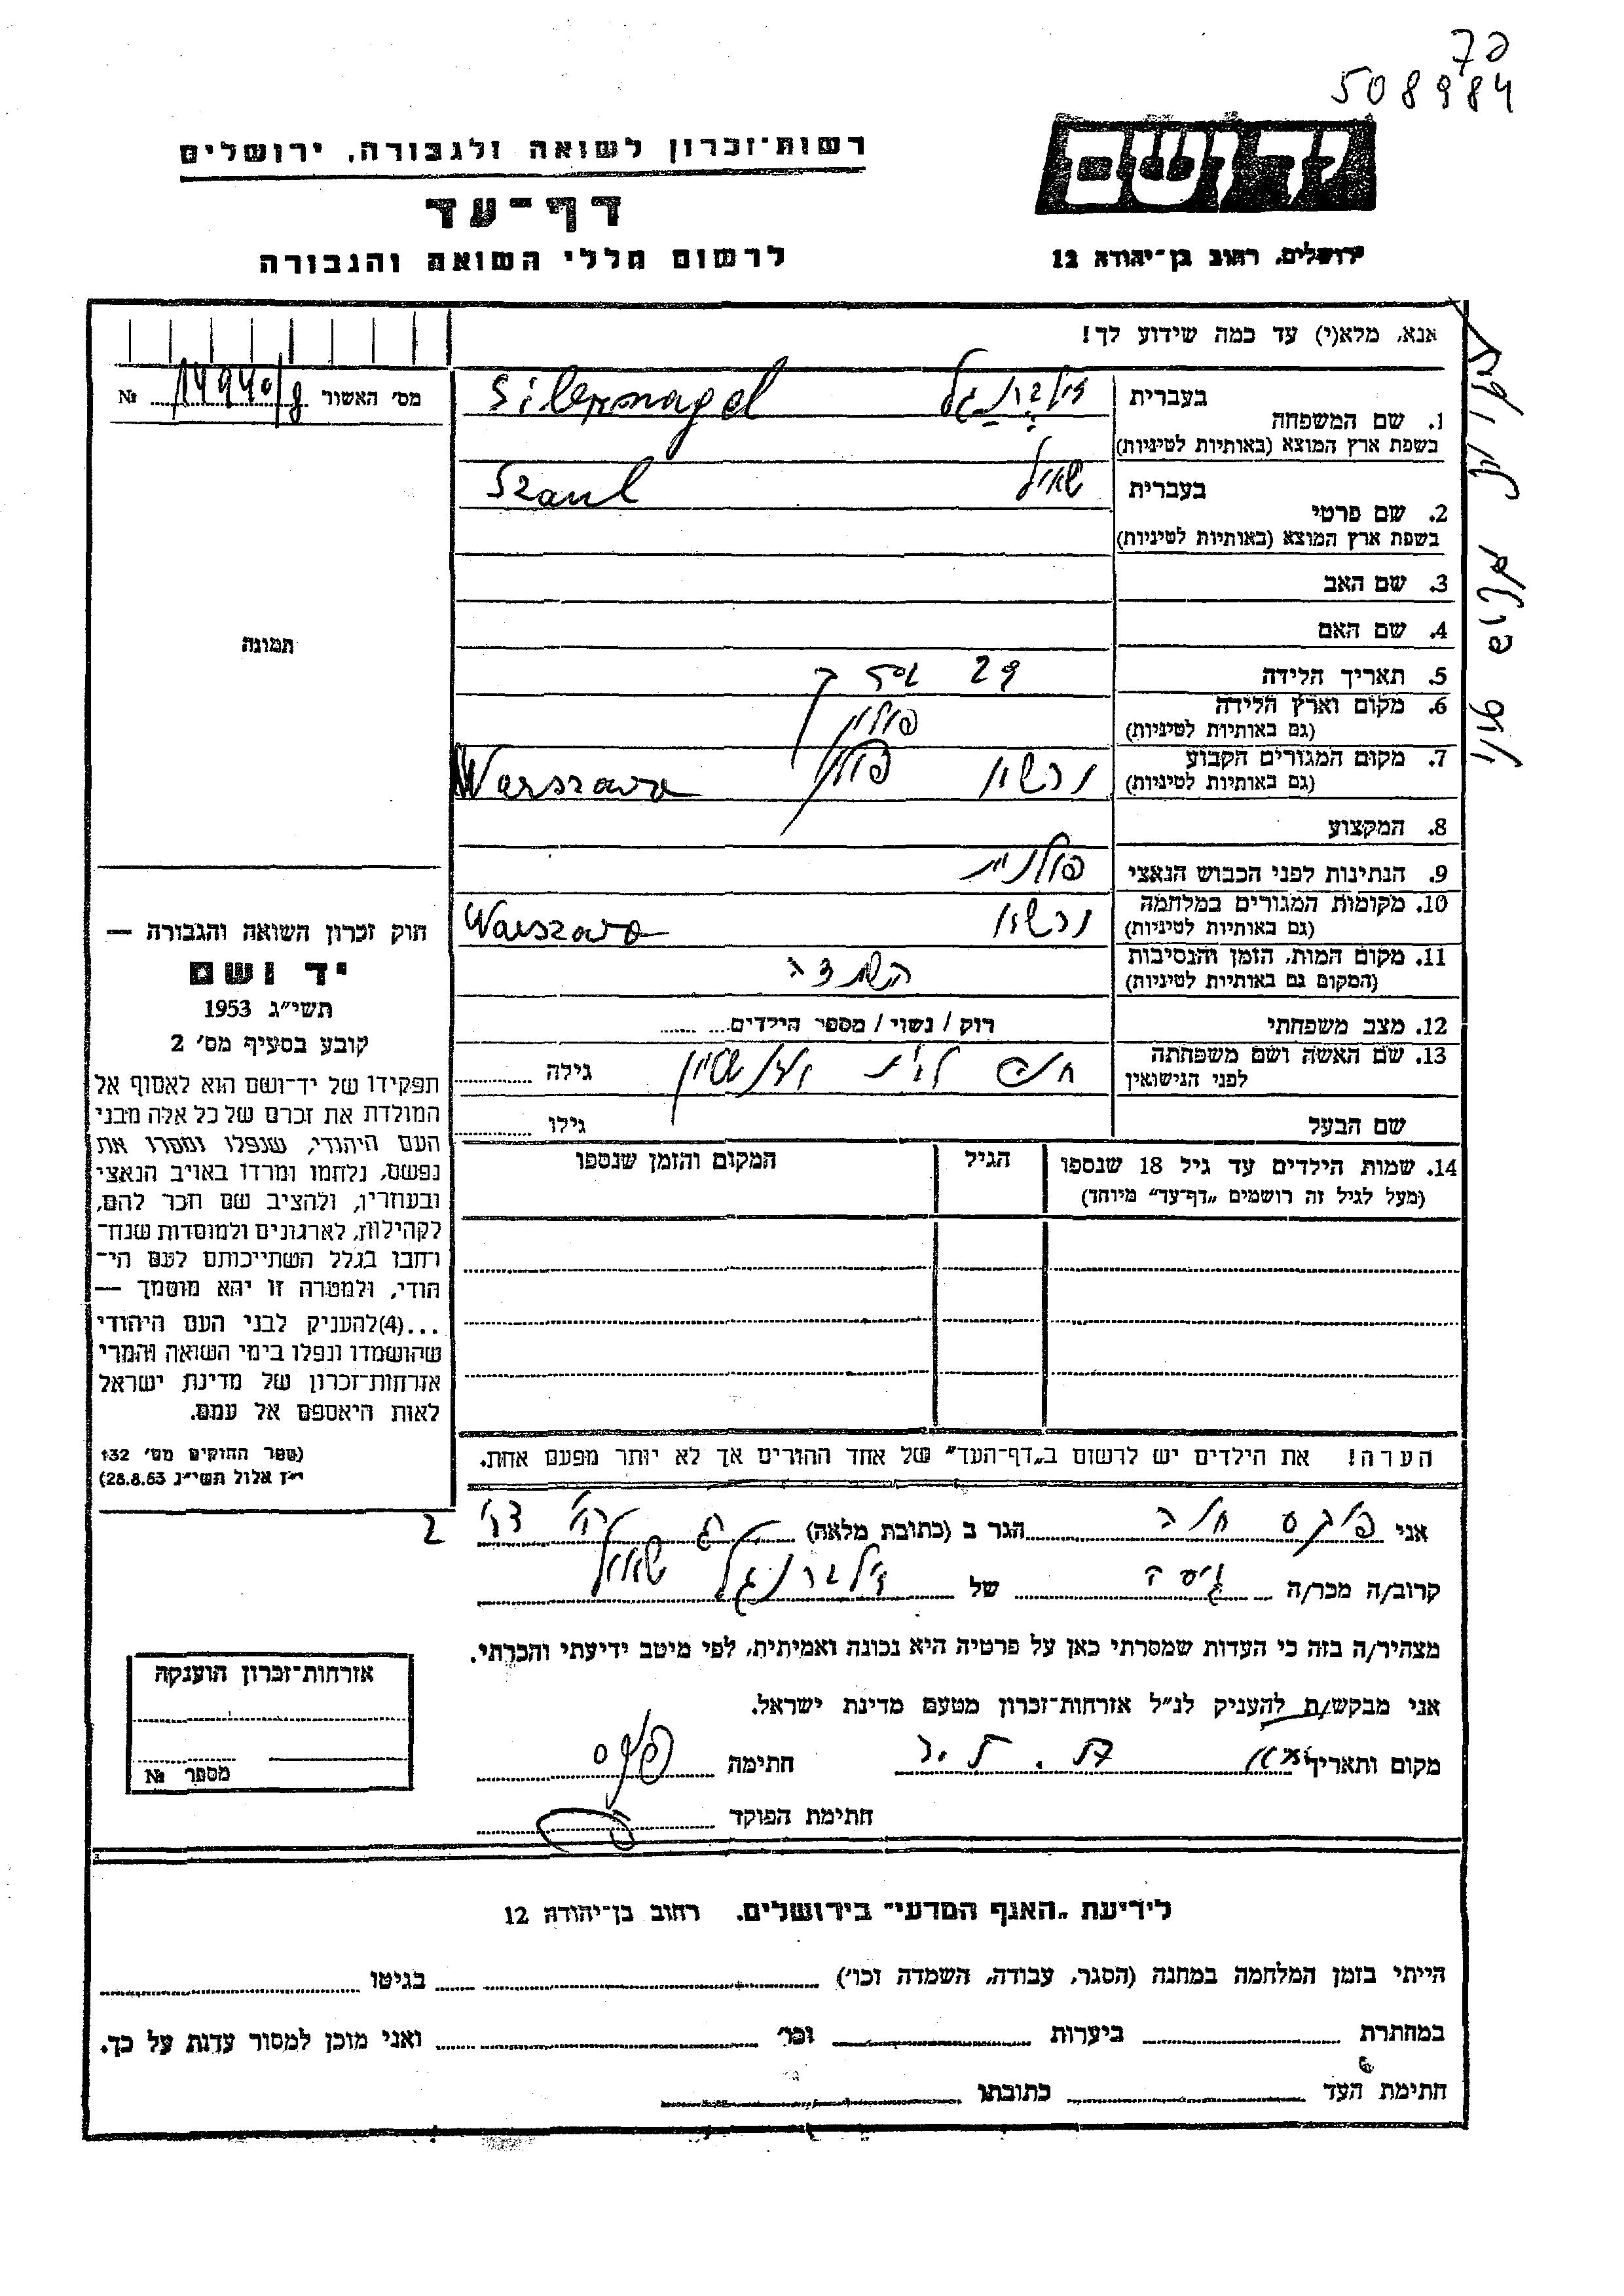 פס
508984
יד ושם
רשות־זכרון לשואה ולגבורה, ירושלים
דף־עד
לרשום חללי השואה והגבורה
ירושלים, רחוב בן־יהודה 12
אנא, מלא(י) עד כמה שידוע לך!
מס׳ האשור № 14940/8
1. שם המשפחה בעברית זילברנגל Silbernagel
בשפת ארץ המוצא (באותיות לטיניות)
2. שם פרטי בעברית שאול Szaul
בשפת ארץ המוצא (באותיות לטיניות)
3. שם האב
4. שם האם
תמונה
5. תאריך הלידה 29
6. מקום וארץ הלידה פולין
(גם באותיות לטיניות)
7. מקום המגורים הקבוע ורשא פולין Warszawa
(גם באותיות לטיניות)
8. המקצוע
9. הנתינות לפני הכבוש הנאצי פולנית
10. מקומות המגורים במלחמה ורשא Warszawa
(גם באותיות לטיניות)
11. מקום המות, הזמן והנסיבות
(המקום גם באותיות לטיניות)
12. מצב משפחתי רוק / נשוי / מספר הילדים
13. שם האשה ושם משפחתה גילה
לפני הנישואין
שם הבעל גילו
14. שמות הילדים עד גיל 18 שנספו הגיל המקום והזמן שנספו
(מעל לגיל זה רושמים „דף־עד” מיוחד)
חוק זכרון השואה והגבורה —
יד ושם
תשי״ג 1953
קובע בסעיף מס׳ 2
תפקידו של יד־ושם הוא לאסוף אל
המולדת את זכרם של כל אלה מבני
העם היהודי, שנפלו ומסרו את
נפשם, נלחמו ומרדו באויב הנאצי
ובעוזריו, ולהציב שם וזכר להם,
לקהילות, לארגונים ולמוסדות שנח־
רבו בגלל השתייכותם לעם הי־
הודי, ולמטרה זו יהא מוסמך —
...(4) להעניק לבני העם היהודי
שהושמדו ונפלו בימי השואה והמרי
אזרחות־זכרון של מדינת ישראל
לאות היאספם אל עמם.
(ספר החוקים מס׳ 132
י״ז אלול תשי״ג 28.8.53)
הערה! את הילדים יש לרשום ב„דף־העד” של אחד ההורים אך לא יותר מפעם אחת.
אני הגר ב (כתובת מלאה) 2
קרוב/ה מכר/ה גיסה של זילברנגל שאול
מצהיר/ה בזה כי העדות שמסרתי כאן על פרטיה היא נכונה ואמיתית, לפי מיטב ידיעתי והכרתי.
אני מבקש/ת להעניק לנ״ל אזרחות־זכרון מטעם מדינת ישראל.
מקום ותאריך חתימה
חתימת הפוקד
אזרחות־זכרון הוענקה
מספר №
לידיעת „האגף המדעי” בירושלים, רחוב בן־יהודה 12
הייתי בזמן המלחמה במחנה (הסגר, עבודה, השמדה וכו׳) בגיטו
במחתרת ביערות וכו׳ ואני מוכן למסור עדות על כך.
חתימת העד כתובתו